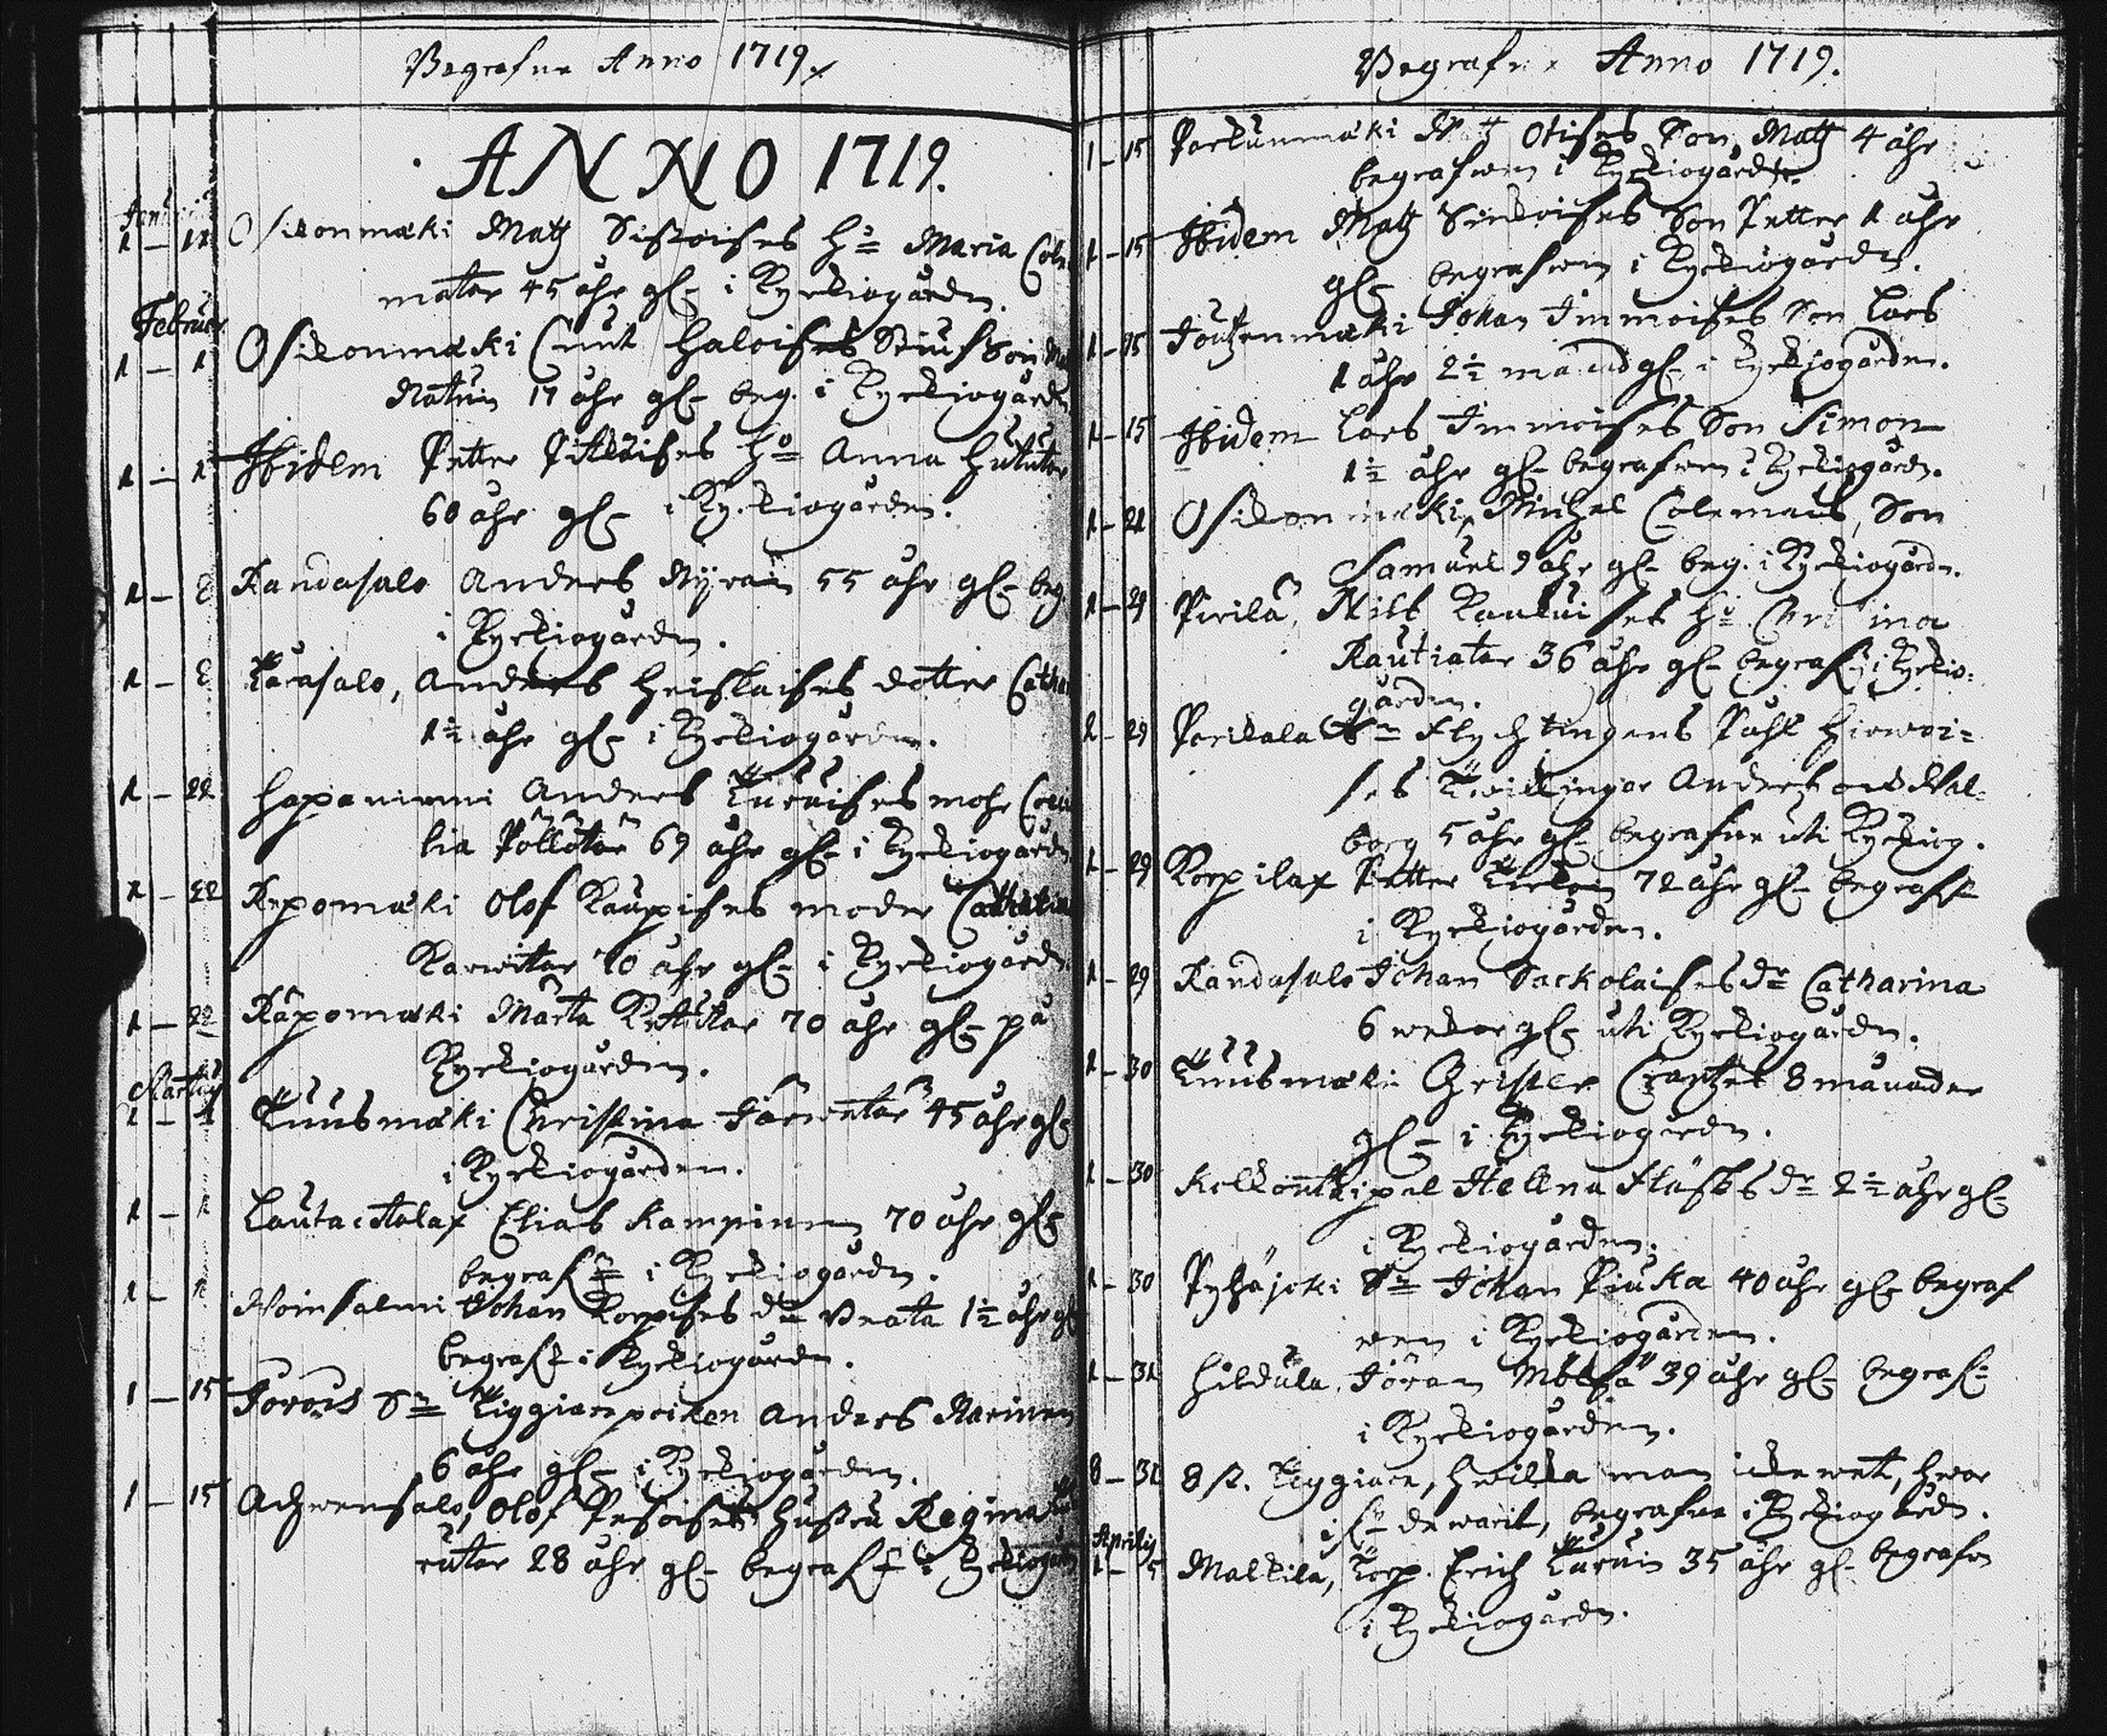 Begrafne Anno 1719.
ANNO 1719.
Januarii
1 - 11 Osikonmäki Matz Sistoises Ho Maria
mater 45 åhr gl i Kyrkiogården.
Februar
1 - 1 Osikonmäki Cnut Haloises
17 åhr gl beg. i Kyrkiogården
1 - 1 Ibidem Petter Pitkeises Ho Anna Hututar
60 åhr gl i Kyrkiogården.
1 - 8 Randasalo Anders Nyrain 55 åhr gl beg.
i Kyrkiogården.
1 - 8 Karasalo, Anders Heiskaises dotter Catha
1½ åhr gl i Kyrkiogården.
1 - 22 Hapaniemi Anders Turuises mohr
lia Pöllötär 69 åhr gl i Kyrkiogården
1 - 22 Repomäki Olof Kaupises moder Catharina
Karwitar 70 åhr gl i Kyrkiogården
1 - 22 Räpomäki Marta Ketutar 70 åhr gl på
Kyrkiogården.
Martius
1 - 1 Tuusmäki Christina Järwentär 45 åhr gl
i Kyrkiogården.
1 - 1 Elias Kampinen 70 åhr gl
begrafn i Kyrkiogården.
1 - 1 Woinsalmi Johan Korpises dr Beata 1½ åhr gl
begraf i Kyrkiogården.
1 - 15 Jorois Sn Tiggiare poiken Anders Narinen
6 åhr gl i Kyrkiogården.
1 - 15 Achwensalo, Olof Pesoises hustru Regina
rutar 28 åhr gl begraf i Kyrkiogård
Begrafne Anno 1719.
1 - 15 Parkunmäki Matz Otises Son Matz 4 åhr
begrafwen i Kyrkiogården.
1 - 15 Ibidem Matz Sirkoises Son Petter 1 åhr
gl begrafwen i Kyrkiogården.
1 - 15 Joutzenmäki Johan Immoises Son Lars
1 åhr 2½ månad gl i Kyrkiogården.
1 - 15 Ibidem Lars Immoises Son Simon
1½ åhr gl begrafwen i Kyrkiogårdn.
1 - 21 Osikonmäki, Michel Colemais, Son
Samuel 9 åhr gl beg. i Kyrkiogårdn.
1 - 29 Pirilä, Nils Kaukuises Ho Christina
Rautiatar 36 åhr gl begraf i Kyrkio=
gården.
2 - 29 Parikala Sn Flychtingens Påhl Hirwoi=
ses Twillingar Anders och Wal=
borg 5 åhr gl begrafne uti Kyrkiog.
1 - 29 Korpilax Petter 72 åhr gl begrafn
i Kyrkiogården.
1 - 29 Randasalo Johan Sackolaises dr Catharina
6 wekor gl uti Kyrkiogården.
1 - 30 Tuusmäki Christer Crantzes 8 månader
gl i Kyrkiogården.
1 - 30 Hellena Fläsks dr 2½ åhr gl
i Kyrkiogården.
1 - 30 Pyhäjoki Sn Johan Piuka 40 åhr gl begraf
wen i Kyrkiogården.
1 - 31 Hildula, Jöran 39 åhr gl begraf
i Kyrkiogården.
8 - 31 8 st. Tiggiare, hwilka man icke wet, hwar
ifrån de warit, begrafne i Kyrkiogårdn.
Aprilis
1 - 5 Malkila, Korp. Erich Turuin 35 åhr gl begrafn
i Kyrkiogårdn.